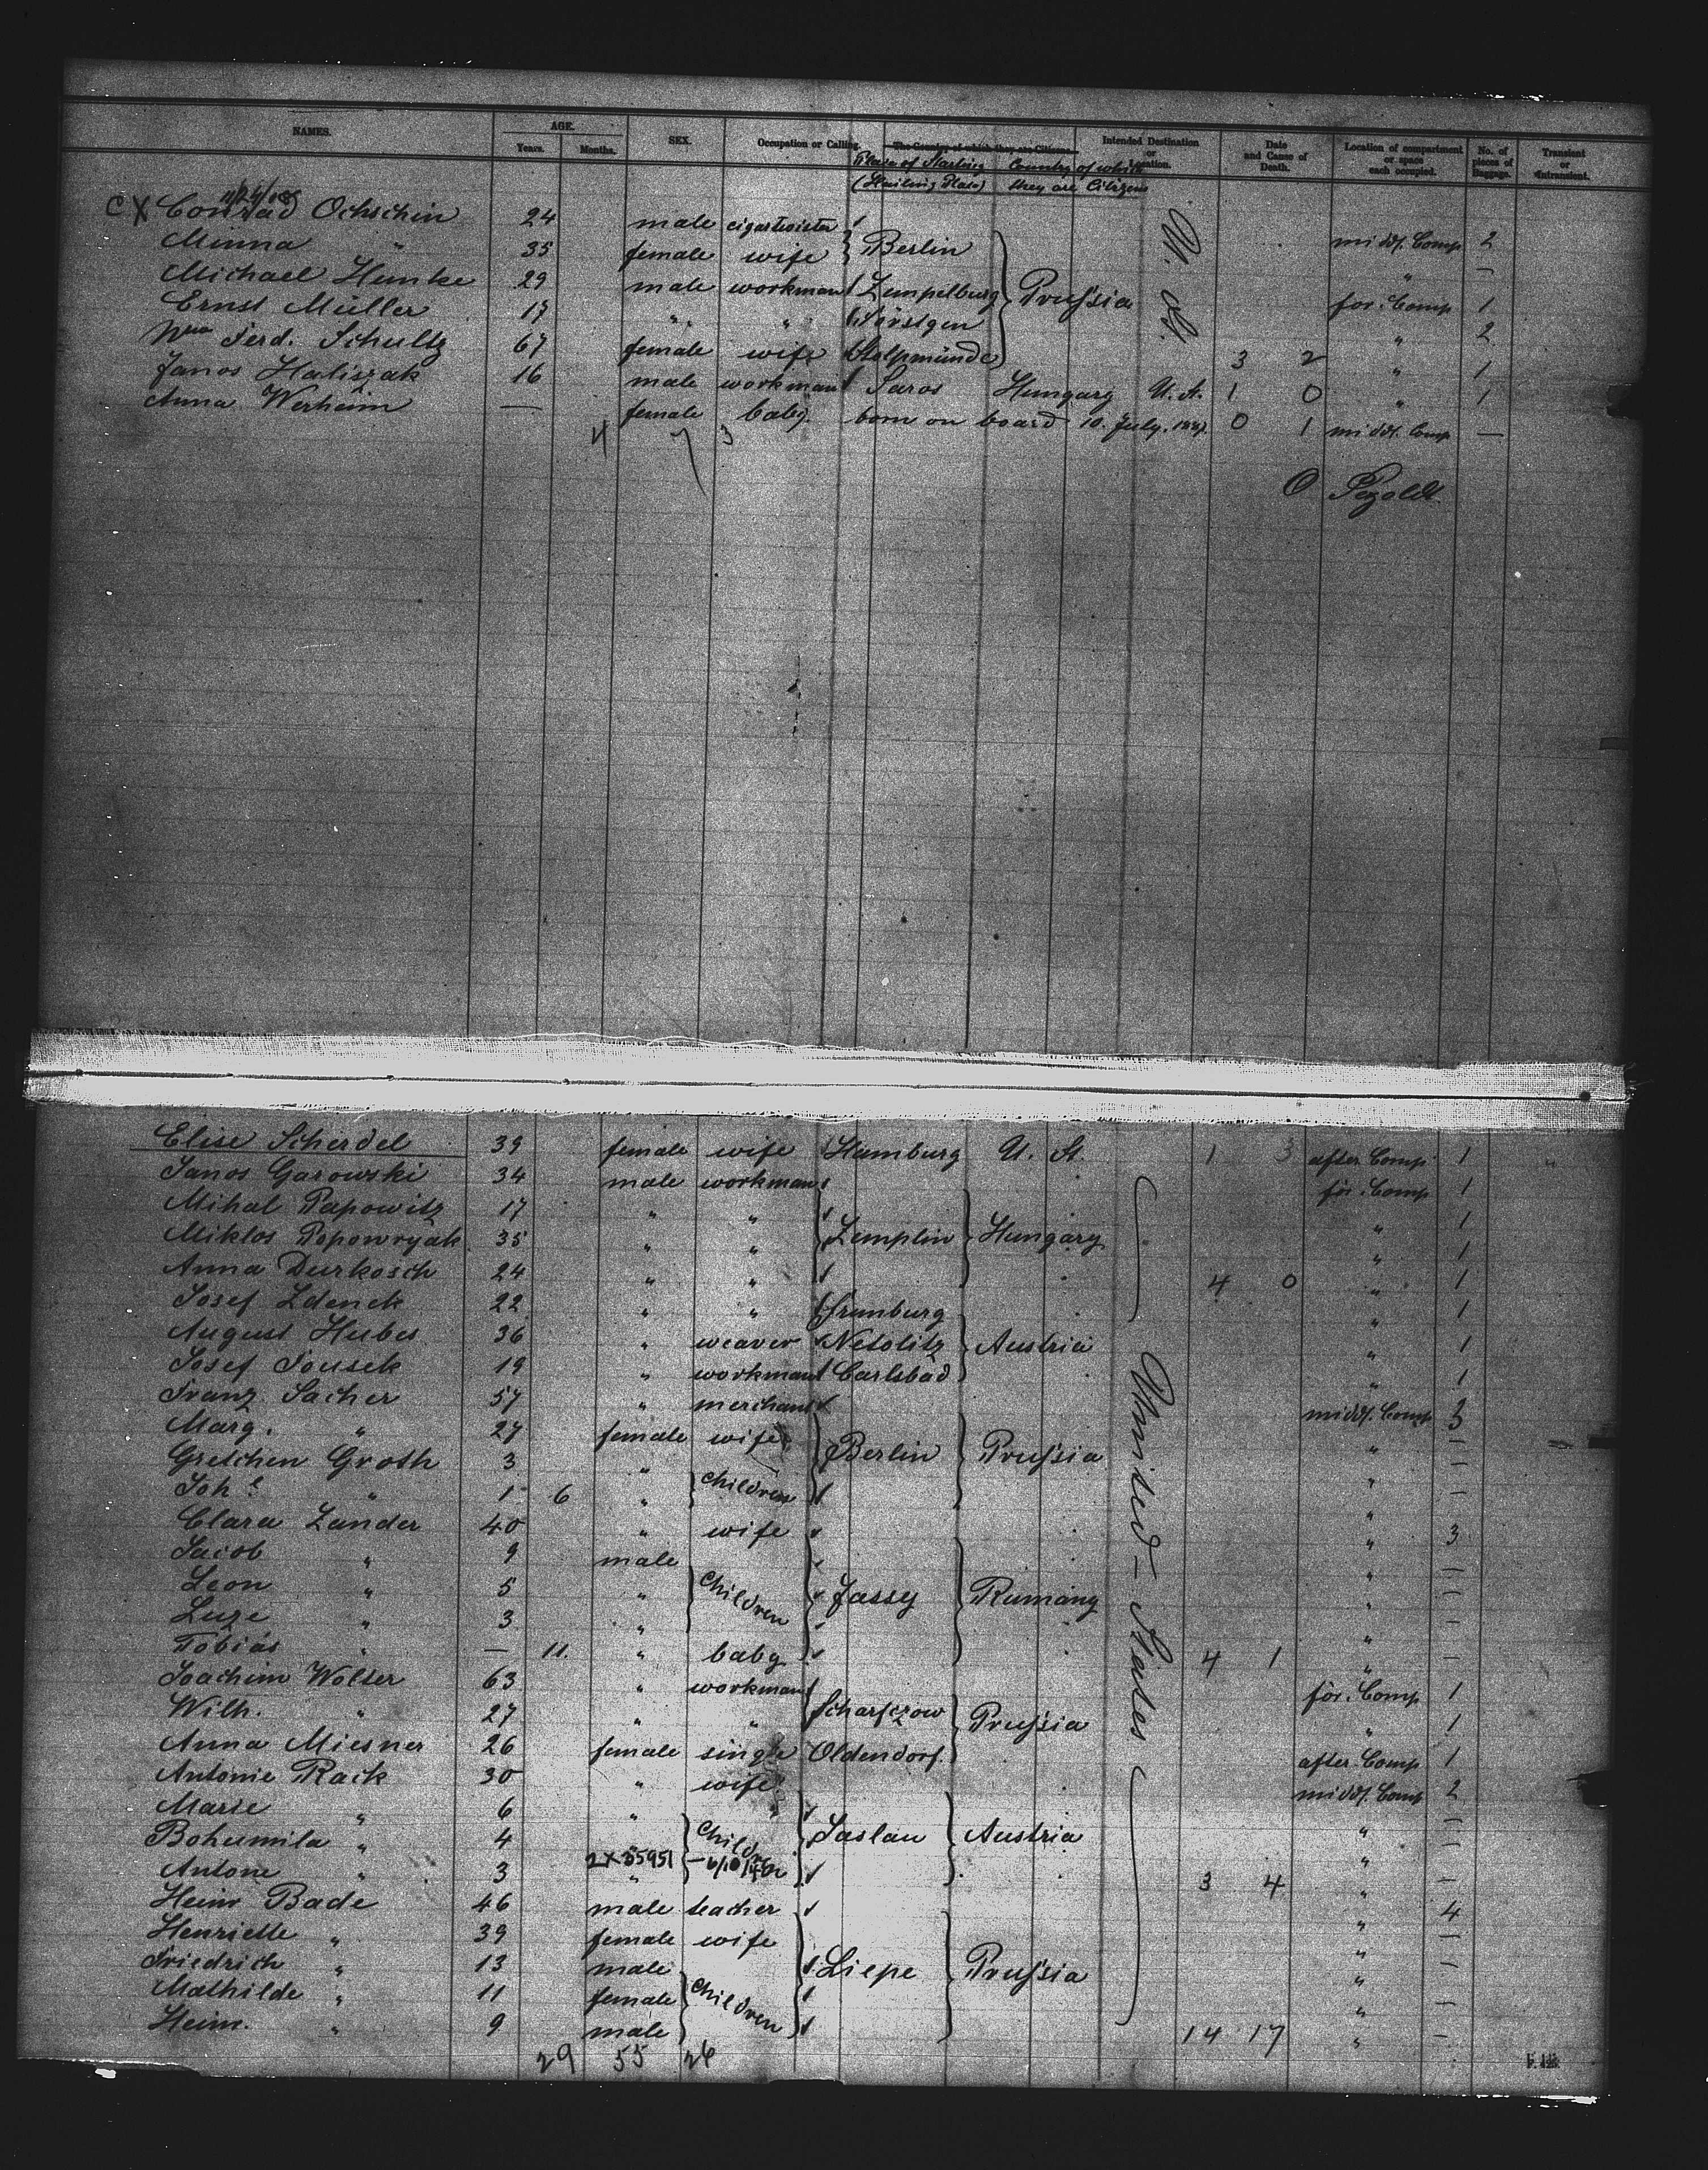 NAMES. AGE. SEX. Occupation or Calling. The Country of which they are Citizens. Intended Destination or Location. Date and Cause of Death. Location of compartment or space each occupied. No. of pieces of Baggage. Transient or Intransient.
Years. Months.
Place of Starting (Hailing Place) Country of which they are Citizens
11/26/08
CX Conrad Ochschin 24 male cigartwister Berlin Prussia U. St. middl. Comp 2
Minna " 35 female wife " —
Michael Hemke 29 male workman Zempelburg for. Comp 1
Ernst Müller 17 " " " 2
Wwe Ferd. Schultz 67 female wife Stolpmünde 3 2 " 1
Janos Haliszak 16 male workman Saros Hungary U. St. 1 0 " 1
Anna Werheim — female baby. born on board 10. July. 1887. 0 1 middl. Comp —
4 7 3
O Pezoldt.
Elise Scherdel 39 female wife Hamburg U. St. 1 3 after Comp 1
Janos Garowski 34 male workman for. Comp 1
Mihal Papowitz 17 " " Zemplin Hungary " 1
Miklos Popowryak 35 " " " 1
Anna Durkosch 24 " " 4 0 " 1
Josef Zdenek 22 " " " 1
August Huber 36 " weaver Netolitz Austria " 1
Josef Tousek 19 " workman Carlsbad " 1
Franz Sacher 57 " merchant middl. Comp 3
Marg. " 27 female wife Berlin Prussia " —
Gretchen Groth 3 " Children " —
Joh. " 1 6 " " —
Clara Zander 40 " wife " 3
Jacob " 9 male Children Jassy Rumany " —
Leon " 5 " " —
Luze " 3 " " —
Tobias " — 11. " baby 4 1 " —
Joachim Wolter 63 " workman Prussia for. Comp 1
Wilh. " 27 " " " 1
Anna Miesner 26 female single Oldendorf. after Comp 1
Antonie Rack 30 " wife middl. Comp 2
Marie " 6 " " —
Bohumila " 4 " Children Saslau Austria " —
Antone " 3 2X35951 — 6/10/42 3 4 " —
Heinr Bade 46 male teacher " 4
Henriette " 39 female wife " —
Friedrich " 13 male Children Liepe Prussia " —
Mathilde " 11 female " —
Heinr. " 9 male 14 17 " —
United-States
29 55 26